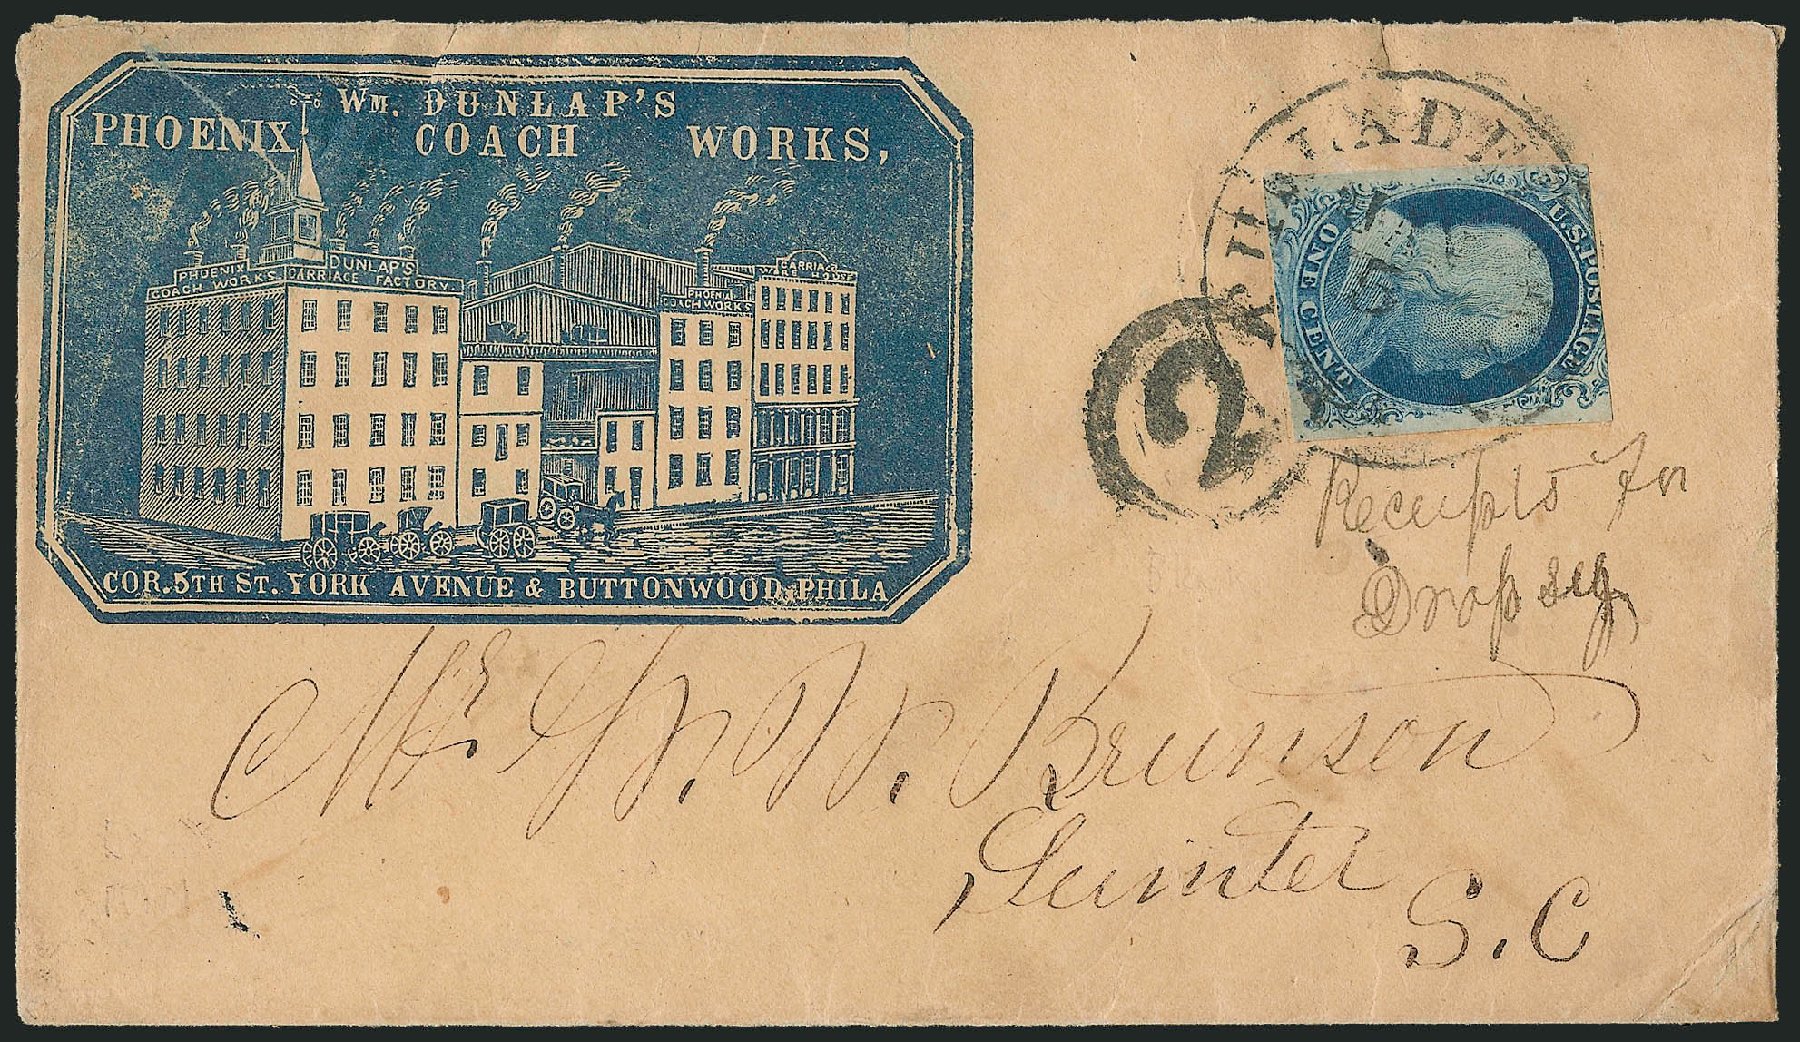 Wm. DUNLAP'S
PHOENIX COACH WORKS,
PHOENIX
COACH WORKS
DUNLAP'S
CARRIAGE FACTORY.
PHOENIX
COACH WORKS
CARRIAG
COR. 5TH ST. YORK AVENUE & BUTTONWOOD. PHILA
PHILADE
5
U.S. POSTAGE
ONE CENT
2
Receipts for
Dropsy
Mr. W. Brunson
Sumter
S.C